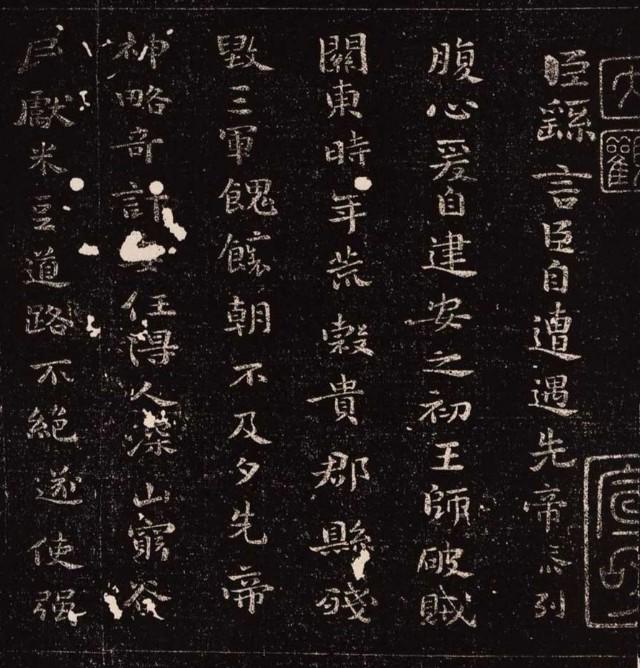 臣繇言臣自遭遇先帝忝列
腹心爰自建安之初王師破賊
關東時年荒穀貴郡縣殘
毀三軍餽饟朝不及夕先帝
神略奇計委任得人深山窮谷
民獻米豆道路不絕遂使强